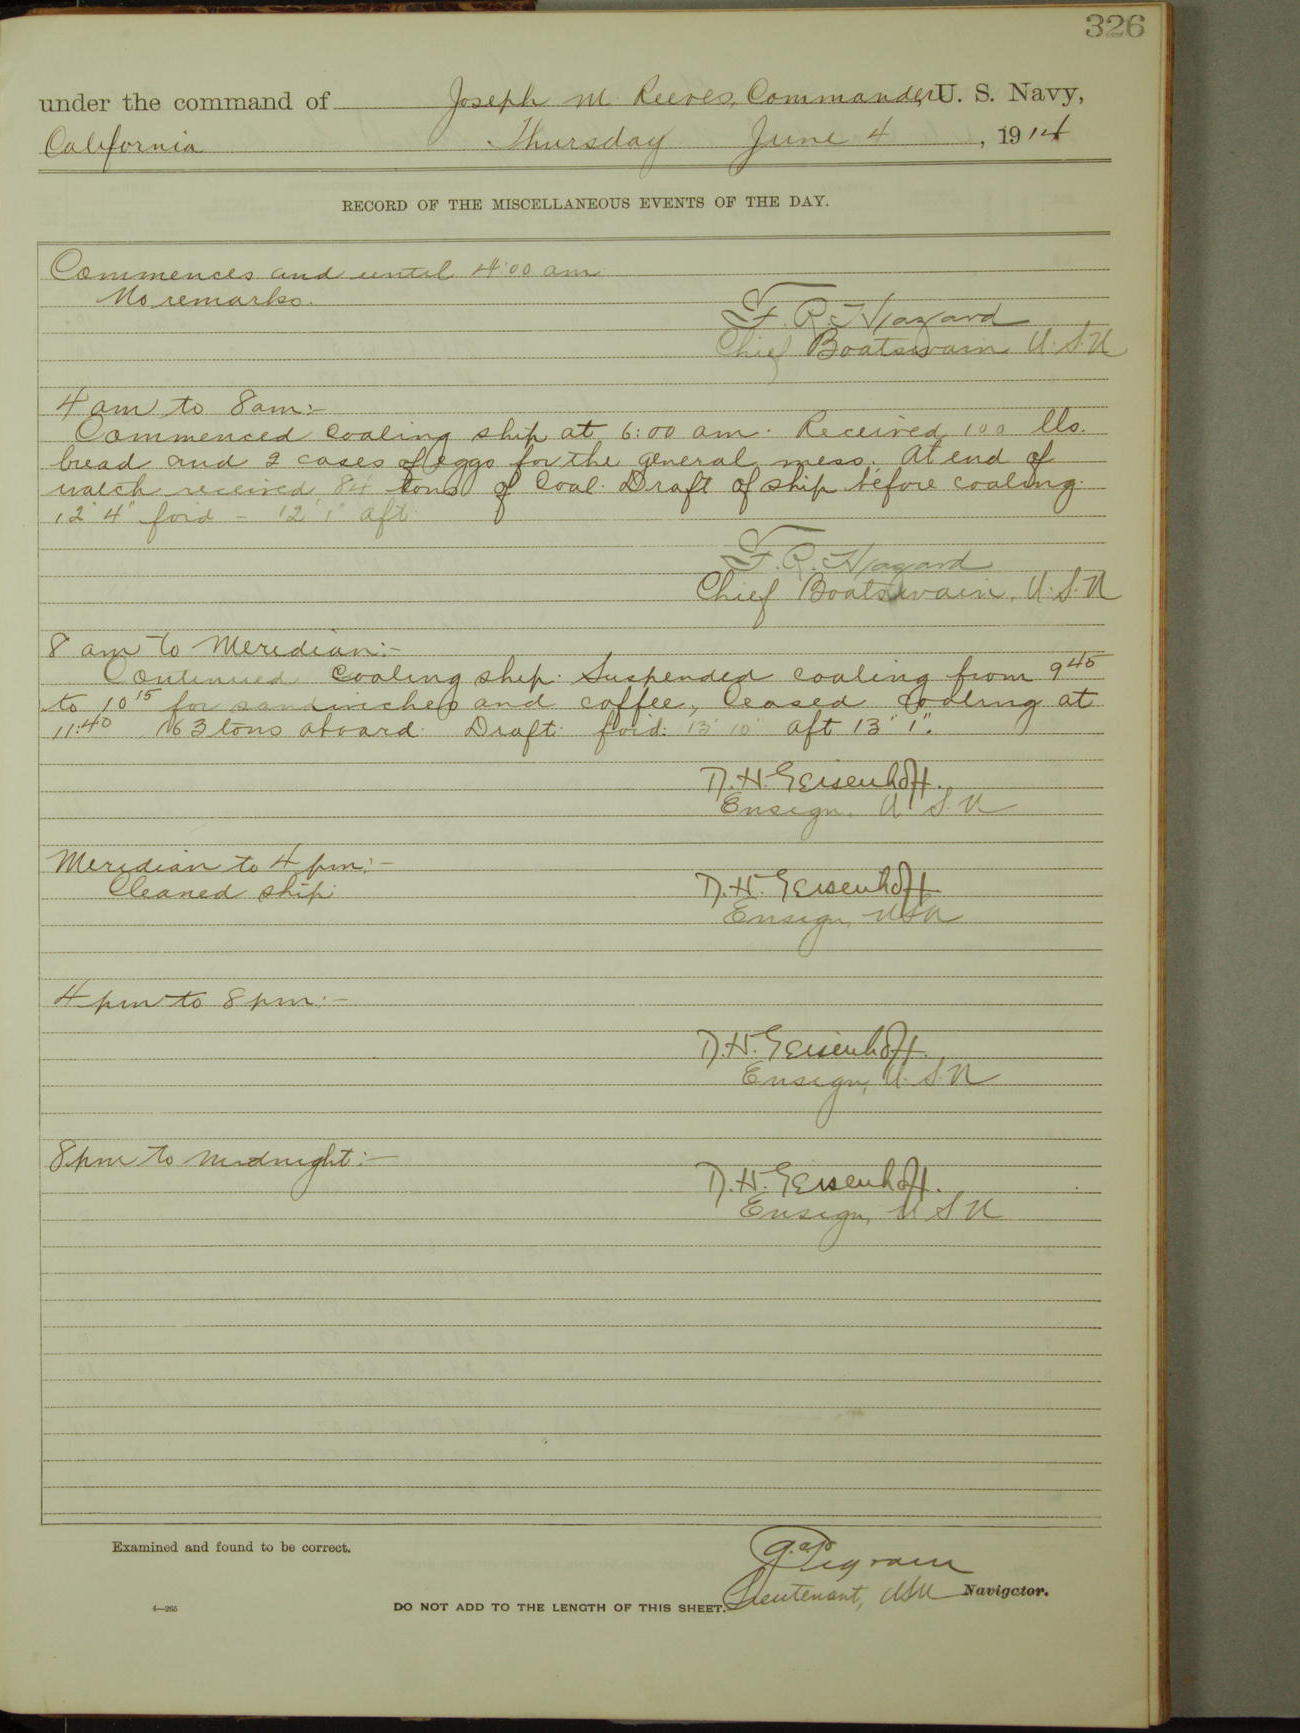 326
under the command of Joseph M Reeves, Commander U. S. Navy,
California Thursday June 4, 1914
RECORD OF THE MISCELLANEOUS EVENTS OF THE DAY.
Commences and until 4:00 am
No remarks.
F. R. Hazard
Chief Boatswain U.S.N
4 am to 8 am:-
Commenced coaling ship at 6:00 am. Received 100 lbs.
bread and 2 cases of eggs for the general mess. At end of
watch received 84 tons of Coal. Draft of ship before coaling
12' 4" ford - 12' 1" aft
F. R. Hazard
Chief Boatswain, U.S.N
8 am to Meridian:-
Continued coaling ship. Suspended coaling from 9 45
to 10 15 for sandwiches and coffee, Ceased coaling at
11:40 163 tons aboard. Draft ford: 13' 10" aft 13' 1".
D. H. Geisenhoff.
Ensign, U S.N
Meridian to 4 pm:-
Cleaned ship.
D. H. Geisenhoff
Ensign, USN
4 pm to 8 pm:-
D. H. Geisenhoff.
Ensign, U.S.N
8 pm to midnight:-
D. H. Geisenhoff.
Ensign, U S N
Examined and found to be correct.
Pegram
Lieutenant, USN Navigator.
4—265
DO NOT ADD TO THE LENGTH OF THIS SHEET.